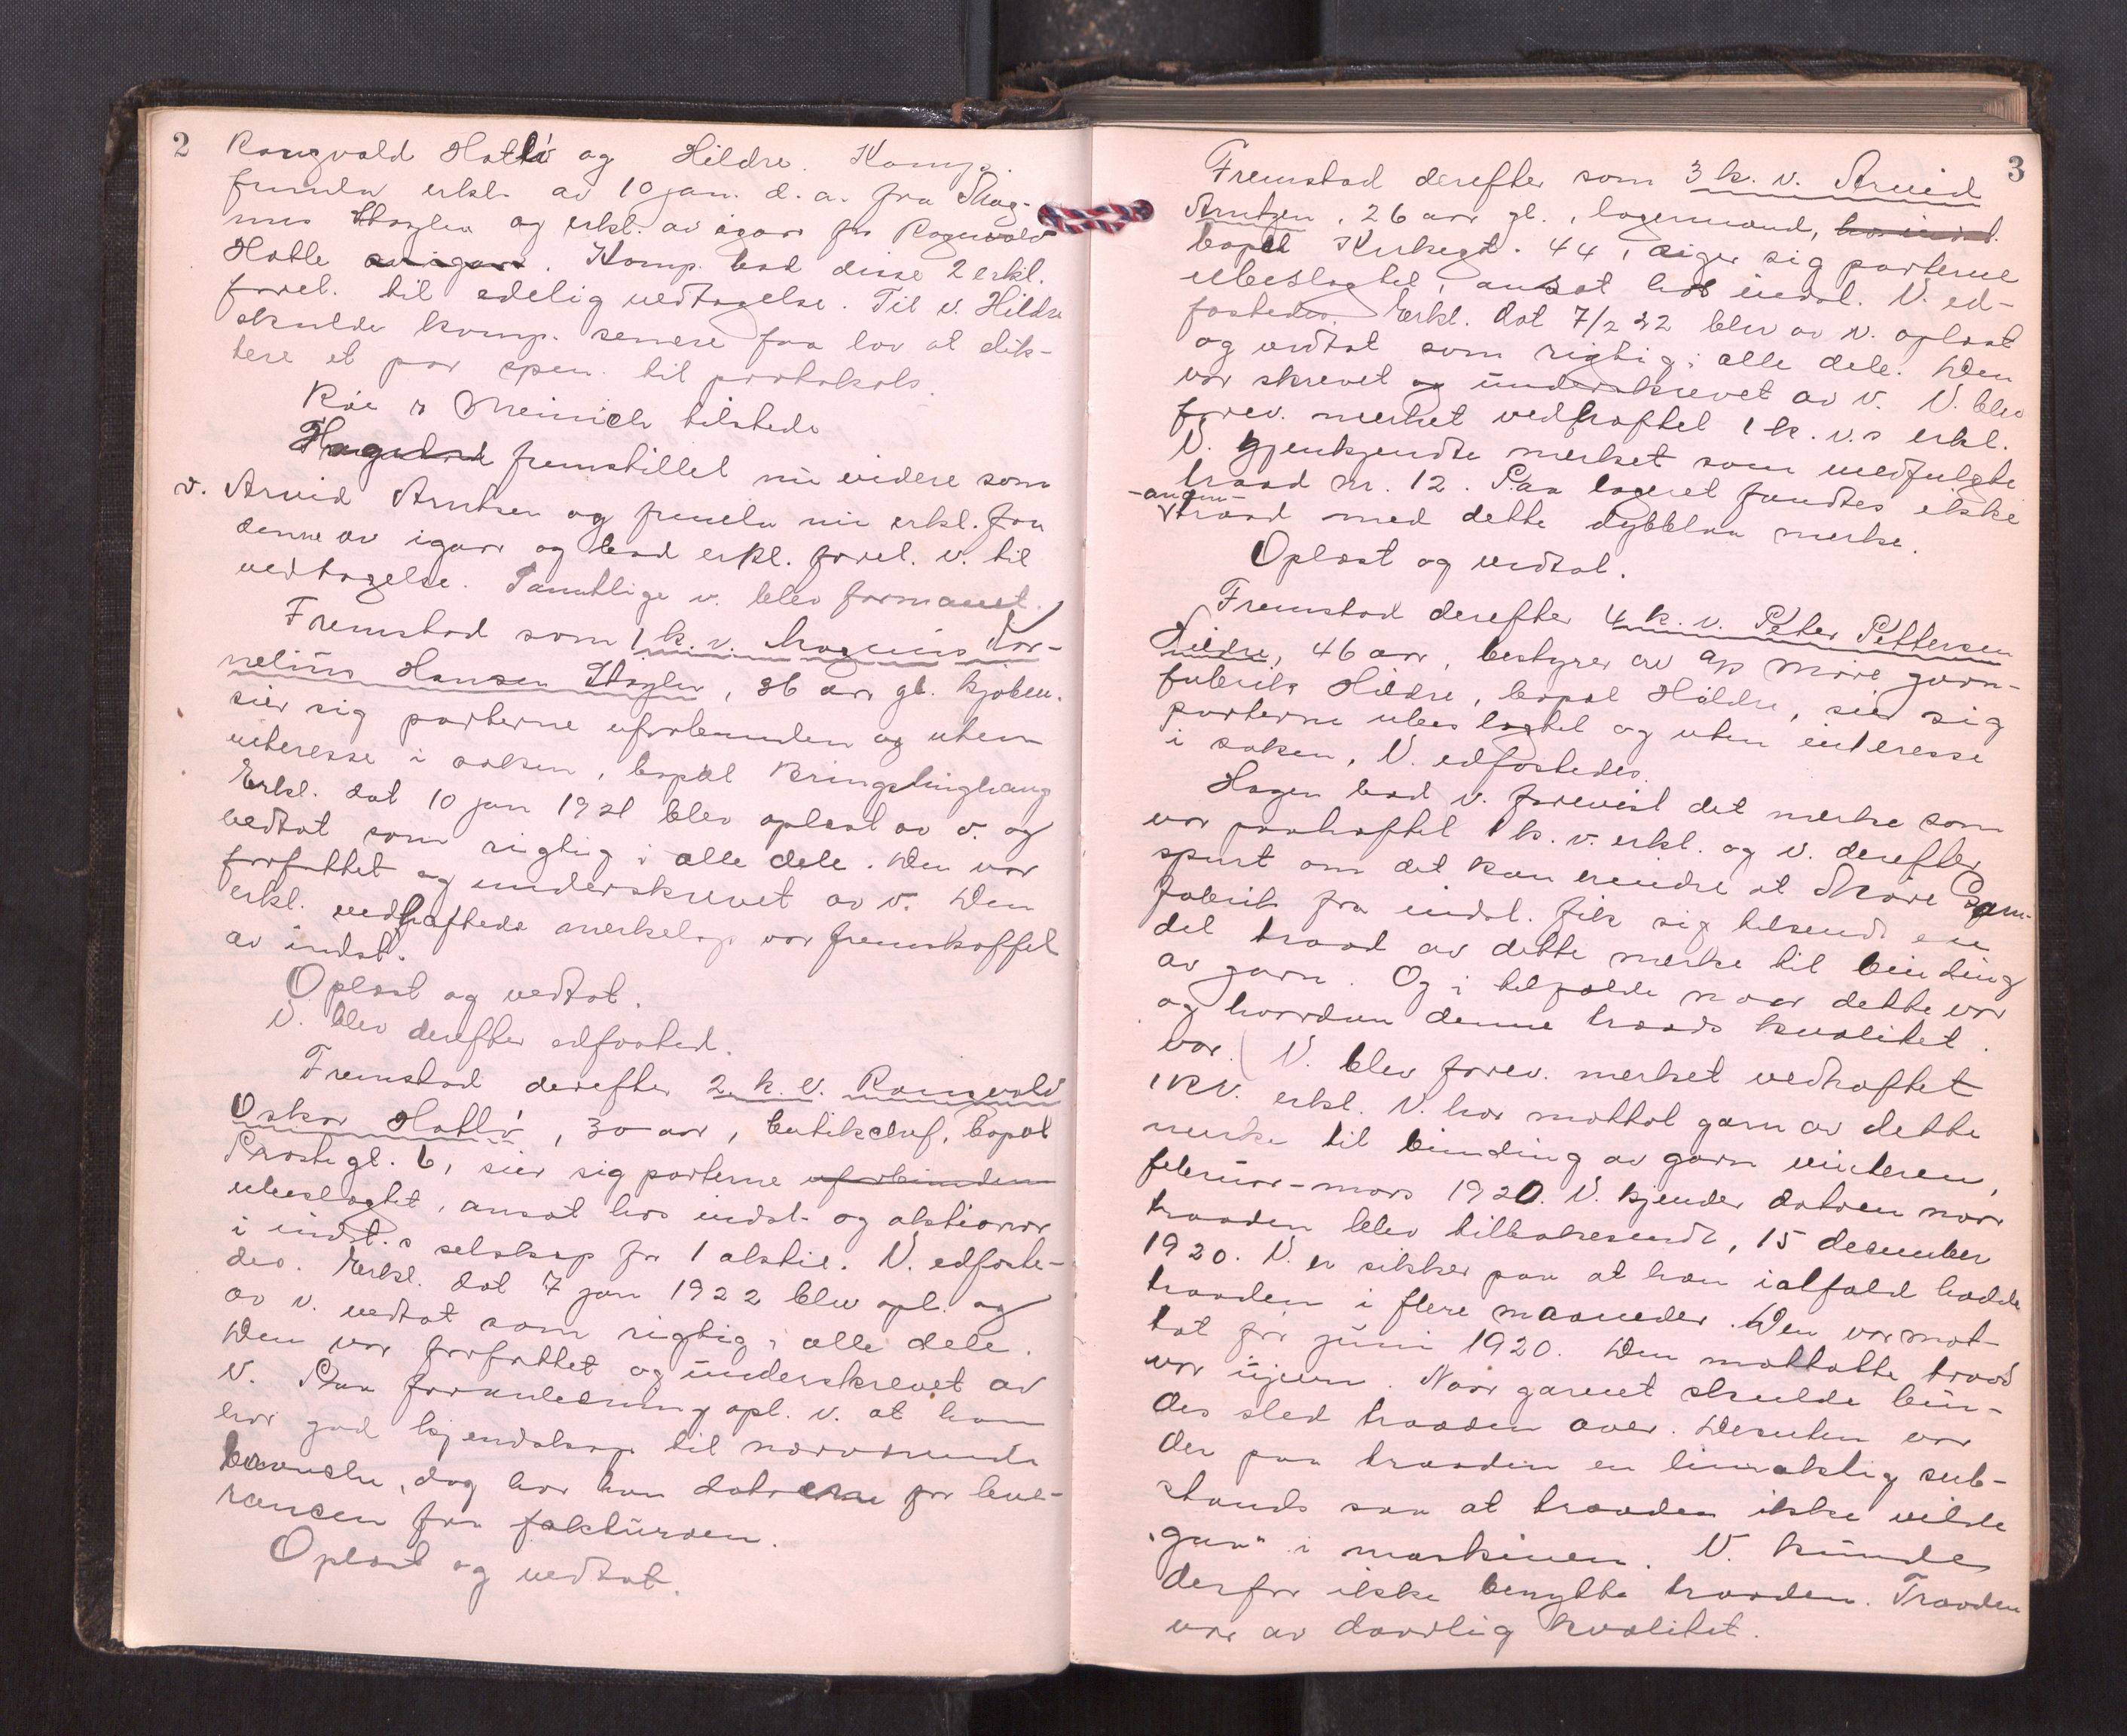 2
Rangvald Hatlé og Hildre. Komp.
freml. erkl. av 10 jan. d. a. fra Mag-
nus Hagler og erkl. av igaar fra Ragnvald
Hatle av igaar. Komp. bad disse 2 erkl.
forel. til edelig vedtagelse. Til v. Hildre
skulde komp. senere faa lov at dik-
tere et par spm. til protokols.
Roe r Meinich tilstede
Hagen fremstillet nu videre som
v. Arvid Arntsen og fremla nu erkl. fra
denne av igaar og bad erkl. forel. v. til
vedtagelse. Samtlige v. blev formanet.
Fremstod som 1 k. v. Magnus Kor-
nelius Hansen Hagler, 36 aar gl. kjøbm.
sier sig parterne uforbunden og uten
interesse i saken, bopæl Kringstinghaug
Erkl. dat 10 jan 1921 blev oplæst av v. og
vedtat som rigtig i alle dele. Den var
forfattet og underskrevet av v. Den
erkl. vedhæftede merkelap var fremskaffet
av indst.
Oplæst og vedtat.
V. blev derefter edfæsted.
Fremstod derefter 2. k. v. Rangvald
Oskar Hatlé, 30 aar, butikchef, bopæl
Prostegt. 6, sier sig parterne uforbunden
ubeslægtet, ansat hos indst. og aktionær
i indst.s selskap for 1 aktie. V. edfæste-
des. Erkl. dat 7 jan 1922 blev opl. og
av v. vedtat som rigtig i alle dele.
Den var forfattet og underskrevet av
V. Paa foranledning opl. v. at han
har god kjendskap til nærværende
branche, dog har han datoerne for leve-
rancen fra fakturaen.
Oplæst og vedtat.
3
Fremstod derefter som 3 k. v. Arvid
Arntzen, 26 aar gl., lagermand, hos indst.
bopæl Kirkegt. 44, siger sig parterne
ubeslægtet, ansat hos indst. V. ed-
fæstedes. Erkl. dat 7/2 22 blev av v. oplæst
og vedtat som rigtig i alle dele. Den
var skrevet og underskrevet av v. V. blev
forev. merket vedhæftet 1 k. v.s erkl.
V. gjenkjendte merket som medfulgte
traad nr. 12. Paa lageret fandtes ikke
-angen-
traad med dette dybblaa merke.
Oplæst og vedtat.
Fremstod derefter 4 k. v. Peter Pettersen
Hildre, 46 aar, bestyrer av A/s Møre garn-
fabrik Hildre, bopæl Hildre, sier sig
parterne ubeslægtet og uten interesse
i saken, V. edfæstedes.
Hagen bad v. forevist det merke som
var paahæftet 1 k. v. erkl. og v. derefter
spurt om det kan erindre at Møre Garn-
fabrik fra indst. fik sig tilsendt en
del traad av dette merke til binding
av garn. Og i tilfælde naar dette var
og hvordan denne traads kvalitet
var. V. blev forev. merket vedhæftet
1 KV. erkl. V. har mottat garn av dette
merke til binding av garn vinteren,
februar-mars 1920. V. kjender datoen naar
traaden blev tilbakesendt, 15 december
1920. V. er sikker paa at han ialfald hadde
traaden i flere maaneder. Den var mot-
tat før juni 1920. Den mottatte traad
var ujevn. Naar garnet skulde bin-
des sled traaden over. Desuten var
der paa traaden en limaktig sub-
stands saa at traaden ikke vilde
"gaa" i maskinen. V. kunde
derfor ikke benytte traaden. Traaden
var av daarlig kvalitet.